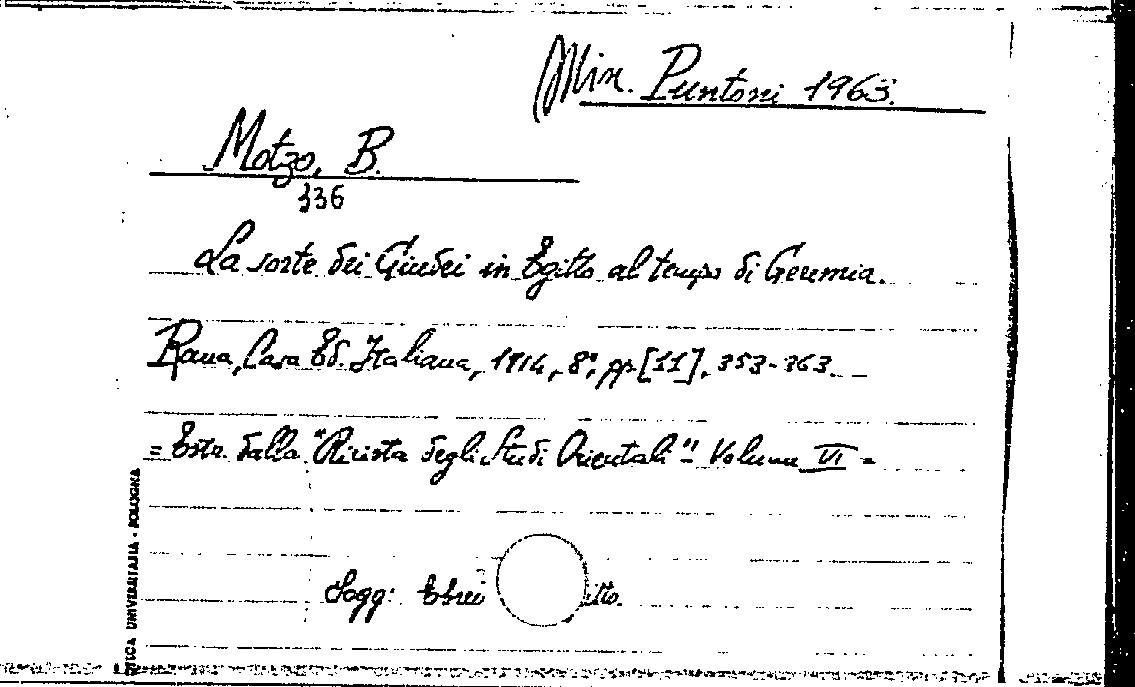 Min. Puntoni 1963.
Motzo, B.
336
La sorte dei Giudei in Egitto al tempo di Geremia.
Roma, Casa Ed. Italiana, 1914, 8°, pp. [11], 353-363.
= Estr. dalla "Rivista degli Studi Orientali" - Volume VI =
Sogg: Ebrei itto.
TECA UNIVERSITARIA - BOLOGNA